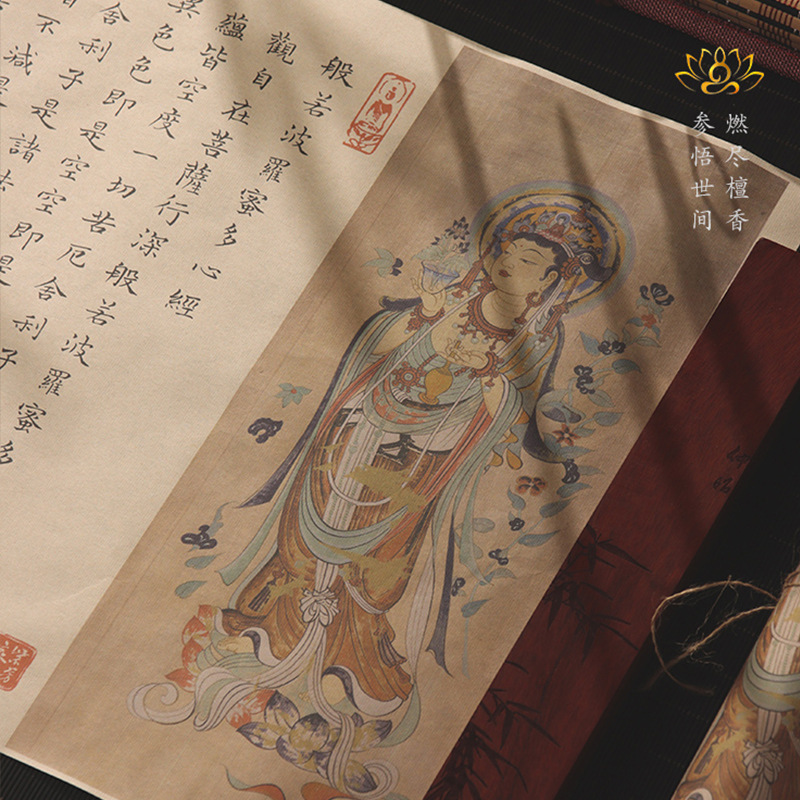 般若波羅蜜多心經
觀自在菩薩行深般若波羅蜜多
蘊皆空度一切苦厄舍利子
異色色即是空空即是
舍利子是諸
不減是
燃尽檀香
参悟世间